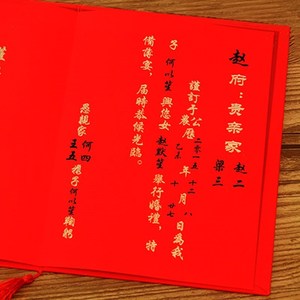 赵府:贵亲家 赵二 梁三
謹訂于公曆 農曆 二零一五 乙未 年 十二 十 月 八 廿七 日為我
子 何以笙 與您女 赵默笙 舉行婚禮，特
備薄宴，届時恭候光臨。
愚親家 何四 王五 携子何以笙鞠躬